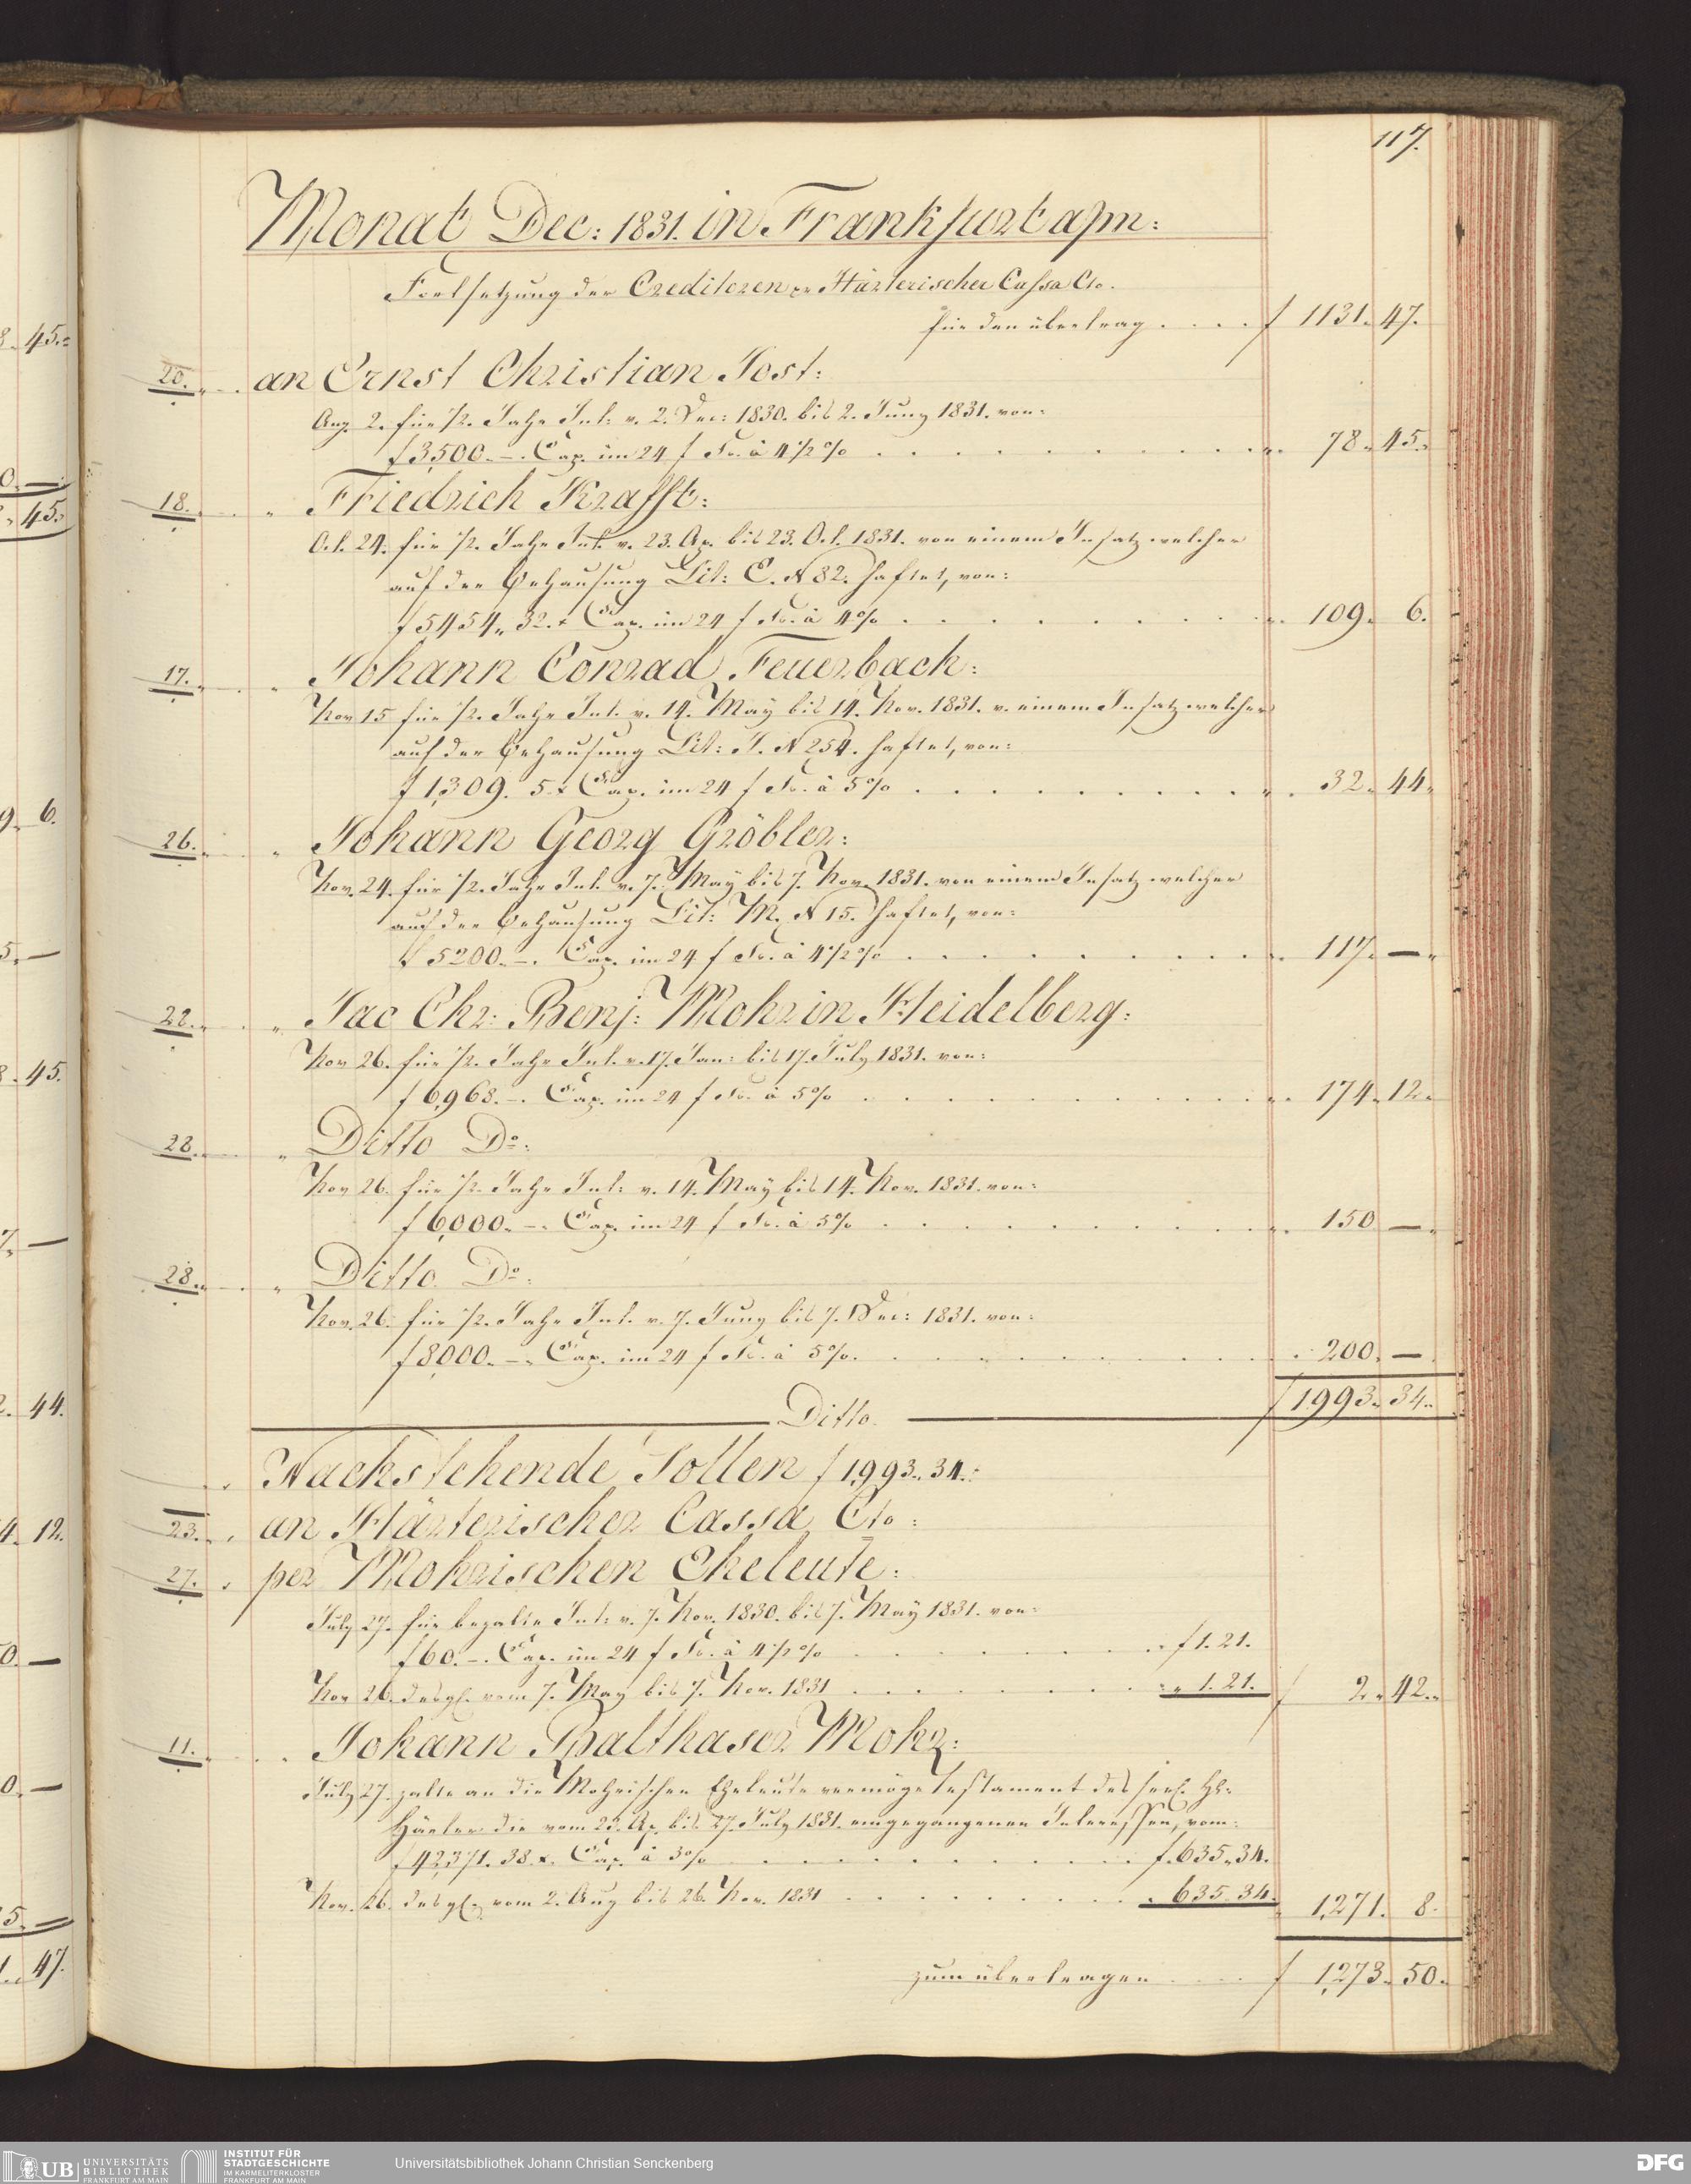 117.
Monat Dec: 1831. in Frankfurt a/m:
Fortsetzung der Creditoren pr Härterischer Cassa Cto.
für den übertrag . . . . f 1131. 47.
20. an Ernst Christian Jost:
Aug. 2. für 1/2. Jahr Int: v. 2. Dec: 1830. bis 2. Juny 1831. von:
f 3,500. –. Cap. im 24 f Fs. à 4 1/2 % . . . 78. 45.
18. „ Friedrich Krafft:
Oct. 24. für 1/2. Jahr Int. v. 23. Ap. bis 23. Oct. 1831. von einem Insatz welcher
auf der Behausung Lit: C. N 82. haftet, von:
f 5454. 32. x Cap. im 24 f Fs. à 4 % . . . 109. 6.
17. „ Johann Conrad Feuerbach:
Nov. 15 für 1/2. Jahr Int. v. 14. May bis 14. Nov. 1831. v. einem Insatz welcher
auf der Behausung Lit: J. N 254. haftet, von:
f 1,309. 5. x Cap. im 24 f Fs. à 5 % . . . 32. 44.
26. „ Johann Georg Gröbler:
Nov. 24. für 1/2. Jahr Int. v. 7. May bis 7. Nov. 1831. von einem Insatz welcher
auf der Behausung Lit: M. N 15. haftet, von:
f 5200. –. Cap. im 24 f Fs. à 4 1/2 % . . . 117. —
28. „ Jac Chr: Benj: Mohr in Heidelberg:
Nov. 26. für 1/2. Jahr Int. v. 17. Jan: bis 17. July 1831. von:
f 6,968. –. Cap. im 24 f Fs. à 5 % . . . 174. 12.
28. „ Ditto Do:
Nov. 26. für 1/2. Jahr Int: v. 14. May bis 14. Nov. 1831. von:
f 6,000. –. Cap. im 24 f Fs. à 5 % . . . 150. —
28. „ Ditto Do:
Nov. 26. für 1/2. Jahr Int. v. 7. Juny bis 7. Dec: 1831. von:
f 8,000. –. Cap. im 24 f Fs. à 5 %. . . . 200. —
f 1,993. 34.
Ditto.
Nachstehende Sollen f 1,993. 34.:
23. an Härterischer Cassa Cto:
27. per Mohrischen Eheleute:
July 27. für bezalte Int: v. 7. Nov. 1830. bis 7. May 1831. von:
f 60. –. Cap. im 24 f Fs. à 4 1/2 % . . . f 1. 21.
Nov. 26. desgl. vom 7. May bis 7. Nov. 1831 . . . „ 1. 21. f 2. 42.
11. Johann Balthaser Mohr:
July 27. zalte an die Mohrischen Eheleute vermöge Testament des seel. Hr.
Härter die vom 23. Ap. bis 27. July 1831. eingegangenen Interessen, vom:
f 42,371. 38. x. Cap. à 3 % . . . f. 635. 34.
Nov. 26. desgl. vom 2. Aug bis 26. Nov. 1831 . . . „ 635. 34. 1,271. 8.
zum übertragen . . . f 1,273. 50.
45.
0. —
45.
9. 6.
5. —
8. 45.
7. —
2. 44.
4. 12.
0. —
0. —
5. —
1. 47.
UB UNIVERSITÄTS
BIBLIOTHEK
FRANKFURT AM MAIN
INSTITUT FÜR
STADTGESCHICHTE
IM KARMELITERKLOSTER
FRANKFURT AM MAIN
Universitätsbibliothek Johann Christian Senckenberg
DFG